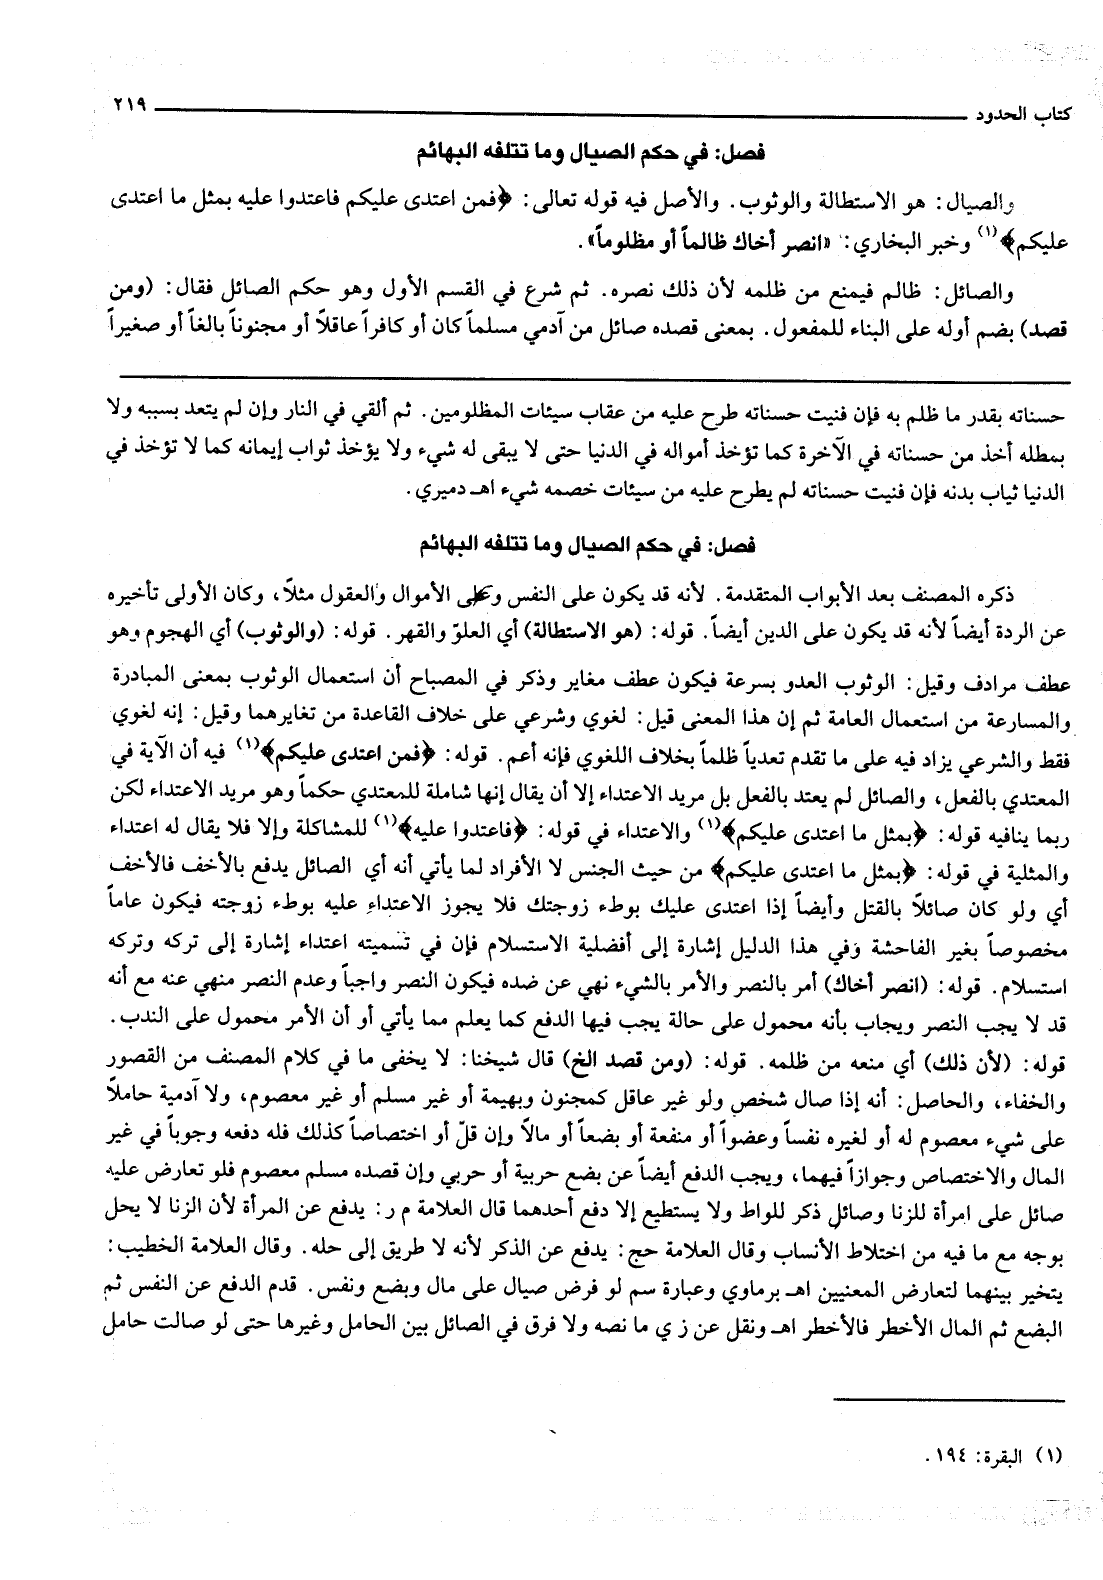 كتاب الحدود ٢١٩
فصل: في حكم الصيال وما تتلفه البهائم
والصيال: هو الاستطالة والوثوب. والأصل فيه قوله تعالى: ﴿فمن اعتدى عليكم فاعتدوا عليه بمثل ما اعتدى
عليكم﴾(١) وخبر البخاري: «انصر أخاك ظالماً أو مظلوماً».
والصائل: ظالم فيمنع من ظلمه لأن ذلك نصره. ثم شرع في القسم الأول وهو حكم الصائل فقال: (ومن
قصد) بضم أوله على البناء للمفعول. بمعنى قصده صائل من آدمي مسلماً كان أو كافراً عاقلاً أو مجنوناً بالغاً أو صغيراً
حسناته بقدر ما ظلم به فإن فنيت حسناته طرح عليه من عقاب سيئات المظلومين. ثم ألقي في النار وإن لم يتعد بسببه ولا
بمطله أخذ من حسناته في الآخرة كما تؤخذ أمواله في الدنيا حتى لا يبقى له شيء ولا يؤخذ ثواب إيمانه كما لا تؤخذ في
الدنيا ثياب بدنه فإن فنيت حسناته لم يطرح عليه من سيئات خصمه شيء اهـ دميري.
فصل: في حكم الصيال وما تتلفه البهائم
ذكره المصنف بعد الأبواب المتقدمة. لأنه قد يكون على النفس وعلى الأموال والعقول مثلاً، وكان الأولى تأخيره
عن الردة أيضاً لأنه قد يكون على الدين أيضاً. قوله: (هو الاستطالة) أي العلوّ والقهر. قوله: (والوثوب) أي الهجوم وهو
عطف مرادف وقيل: الوثوب العدو بسرعة فيكون عطف مغاير وذكر في المصباح أن استعمال الوثوب بمعنى المبادرة
والمسارعة من استعمال العامة ثم إن هذا المعنى قيل: لغوي وشرعي على خلاف القاعدة من تغايرهما وقيل: إنه لغوي
فقط والشرعي يزاد فيه على ما تقدم تعدياً ظلماً بخلاف اللغوي فإنه أعم. قوله: ﴿فمن اعتدى عليكم﴾(١) فيه أن الآية في
المعتدي بالفعل، والصائل لم يعتد بالفعل بل مريد الاعتداء إلا أن يقال إنها شاملة للمعتدي حكماً وهو مريد الاعتداء لكن
ربما ينافيه قوله: ﴿بمثل ما اعتدى عليكم﴾(١) والاعتداء في قوله: ﴿فاعتدوا عليه﴾(١) للمشاكلة وإلا فلا يقال له اعتداء
والمثلية في قوله: ﴿بمثل ما اعتدى عليكم﴾ من حيث الجنس لا الأفراد لما يأتي أنه أي الصائل يدفع بالأخف فالأخف
أي ولو كان صائلاً بالقتل وأيضاً إذا اعتدى عليك بوطء زوجتك فلا يجوز الاعتداء عليه بوطء زوجته فيكون عاماً
مخصوصاً بغير الفاحشة وفي هذا الدليل إشارة إلى أفضلية الاستسلام فإن في تسميته اعتداء إشارة إلى تركه وتركه
استسلام. قوله: (انصر أخاك) أمر بالنصر والأمر بالشيء نهي عن ضده فيكون النصر واجباً وعدم النصر منهي عنه مع أنه
قد لا يجب النصر ويجاب بأنه محمول على حالة يجب فيها الدفع كما يعلم مما يأتي أو أن الأمر محمول على الندب.
قوله: (لأن ذلك) أي منعه من ظلمه. قوله: (ومن قصد الخ) قال شيخنا: لا يخفى ما في كلام المصنف من القصور
والخفاء، والحاصل: أنه إذا صال شخص ولو غير عاقل كمجنون وبهيمة أو غير مسلم أو غير معصوم، ولا آدمية حاملاً
على شيء معصوم له أو لغيره نفساً وعضواً أو منفعة أو بضعاً أو مالاً وإن قلّ أو اختصاصاً كذلك فله دفعه وجوباً في غير
المال والاختصاص وجوازاً فيهما، ويجب الدفع أيضاً عن بضع حربية أو حربي وإن قصده مسلم معصوم فلو تعارض عليه
صائل على امرأة للزنا وصائل ذكر للواط ولا يستطيع إلا دفع أحدهما قال العلامة م ر: يدفع عن المرأة لأن الزنا لا يحل
بوجه مع ما فيه من اختلاط الأنساب وقال العلامة حج: يدفع عن الذكر لأنه لا طريق إلى حله. وقال العلامة الخطيب:
يتخير بينهما لتعارض المعنيين اهـ برماوي وعبارة سم لو فرض صيال على مال وبضع ونفس. قدم الدفع عن النفس ثم
البضع ثم المال الأخطر فالأخطر اهـ ونقل عن ز ي ما نصه ولا فرق في الصائل بين الحامل وغيرها حتى لو صالت حامل
(١) البقرة: ١٩٤.